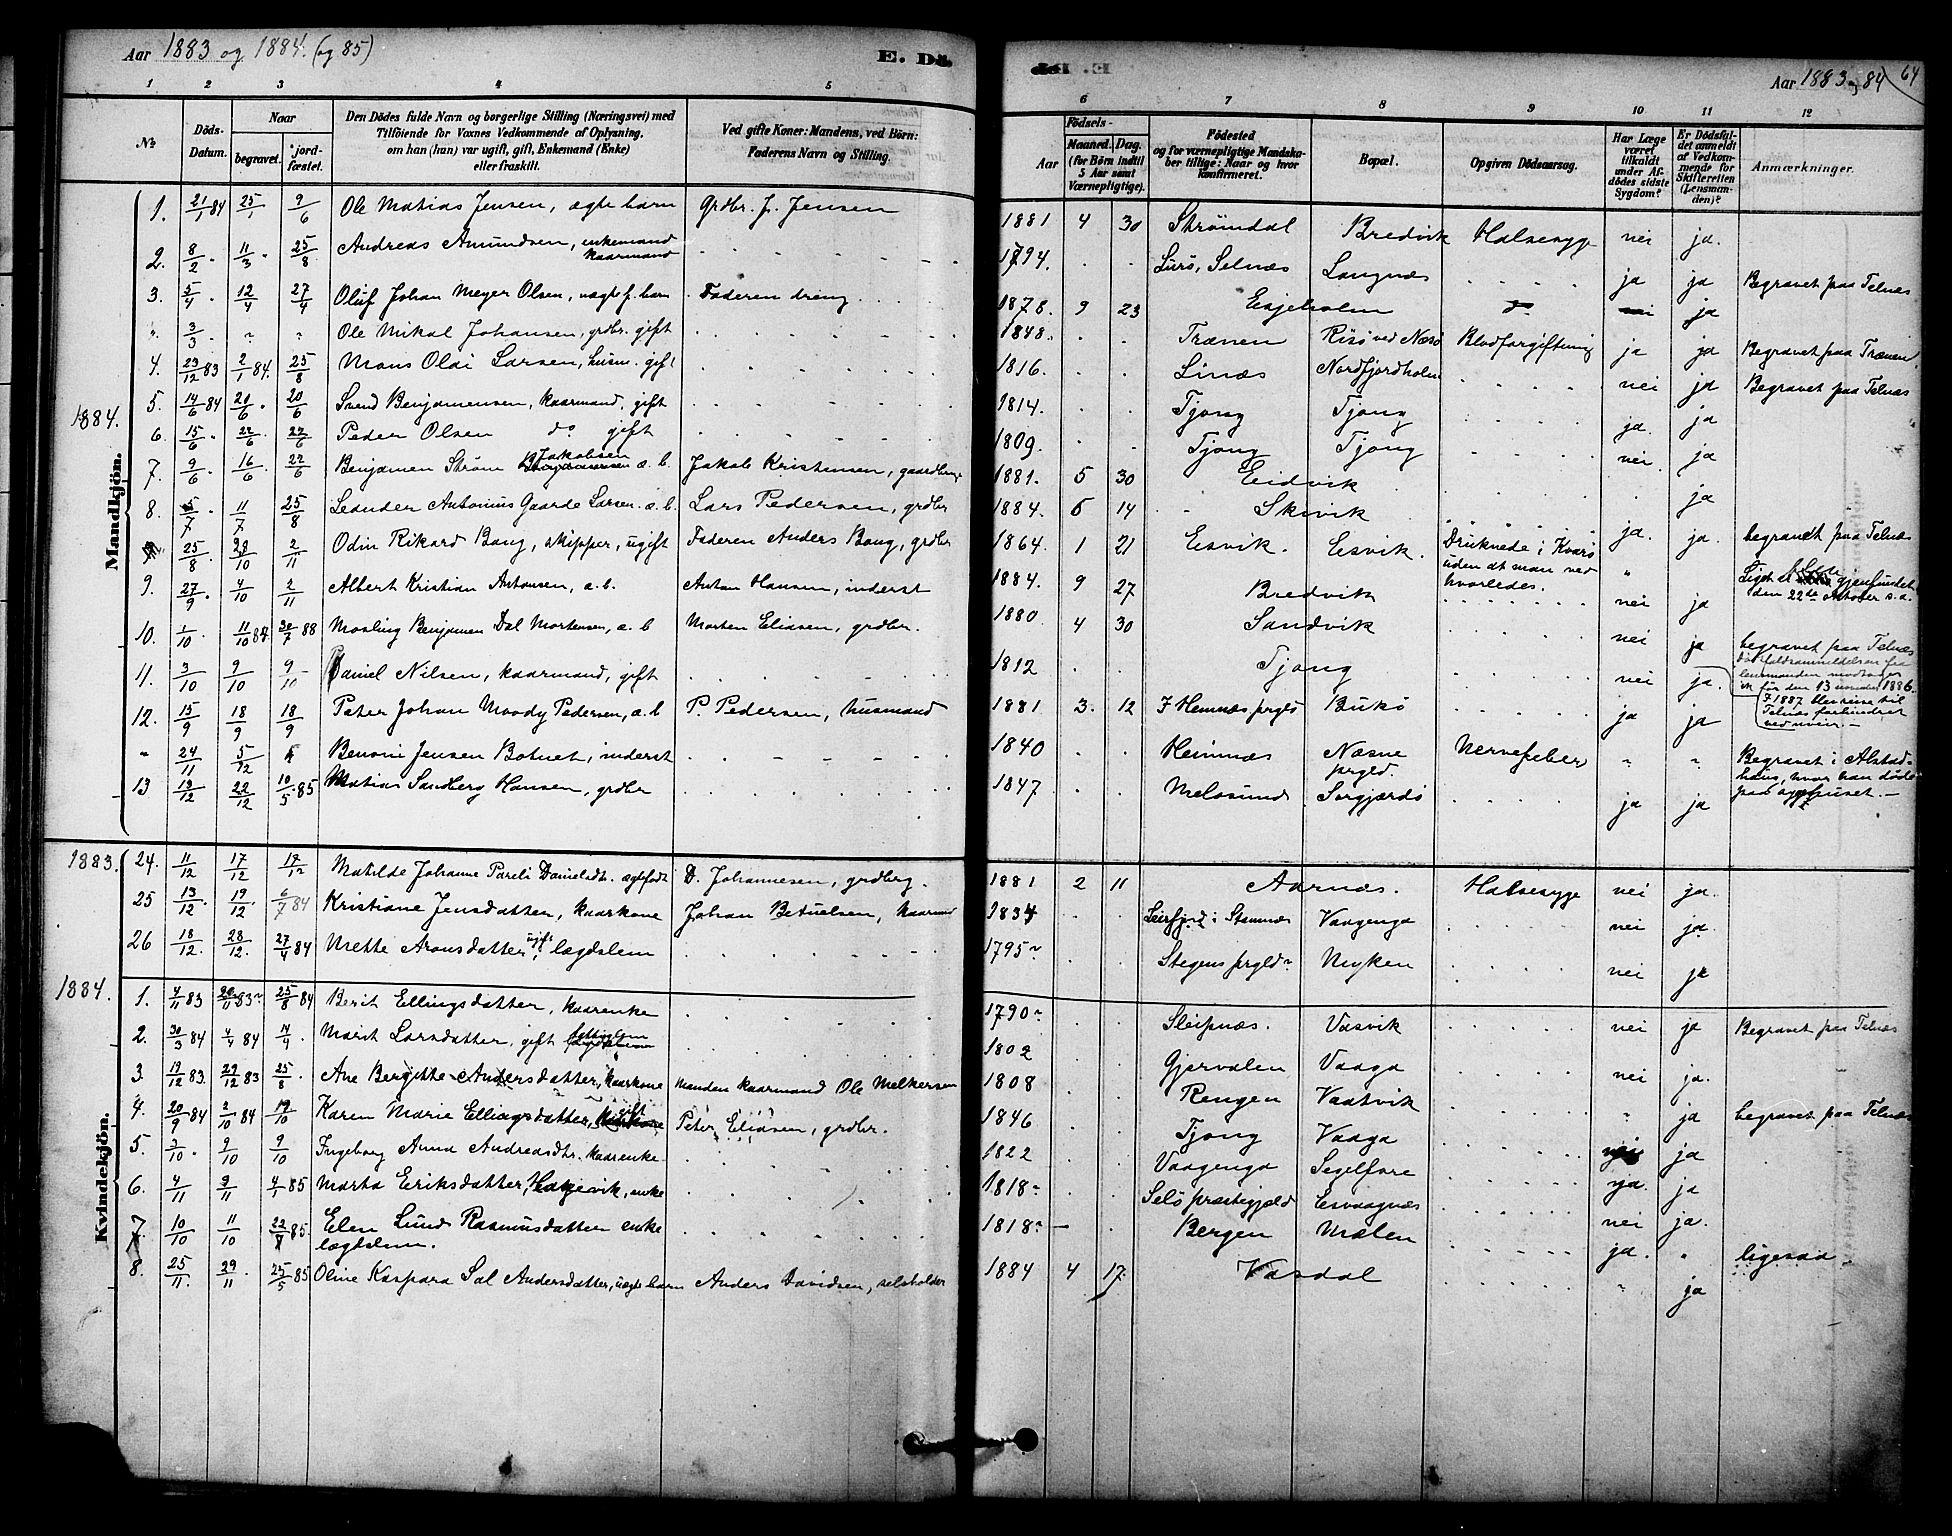 Aar 1883 og 1884. (og 85)
E. Dö.
Aar 1883 og 84
64
1 2 3 4 5
6 7 8 9 10 11 12
No.
Döds-Datum.
Naar
begravet.
jord-fæstet.
Den Dödes fulde Navn og borgerlige Stilling (Næringsvei) med
Tilföiende for Voxnes Vedkommende af Oplysning,
om han (hun) var ugift, gift, Enkemand (Enke)
eller fraskilt.
Ved gifte Koner: Mandens, ved Börn:
Faderens Navn og Stilling.
Födsels-
Aar
Maaned. Dag.
(for Börn indtil
5 Aar samt
Værnepligtige).
Födested
og for værnepligtige Mandska-
ber tillige: Naar og hvor
konfirmeret.
Bopæl.
Opgiven Dödsaarsag.
Har Læge
været
tilkaldt
under Af-
dödes sidste
Sygdom?
Er Dödsfal-
det anmeldt
af Vedkom-
mende for
Skifteretten
(Lensman-
den)?
Anmærkninger.
1884.
Mandkjön.
1. 21/1 84 25/1 9/6 Ole Matias Jensen, ægte barn Grdbr. J. Jensen 1881 4 30 Strömdal Bredvik Halsesyge nei ja.
2. 8/2 11/3 25/8 Andreas Amundsen, enkemand kaarmand 1794. Lurö, Selnæs Langnæs ja ja Begravet paa Telnæs
3. 5/4 12/4 27/4 Oluf Johan Meyer Olsen, uægte f. barn Faderen dreng 1878. 9 23 Esjeholm nei ja
" 3/3 " " Ole Mikal Johansen, grdbr. gift 1848. Trænen Risö ved Næsö Blodforgiftning ja ja Begravet paa Trænen
4. 23/12 83 2/1 84. 25/8 Mons Olai Larsen, husm. gift 1816. Linæs Nordfjordholm nei ja Begravet paa Telnæs
5. 14/6 84 20/6 20/6 Svend Benjamensen, kaarmand, gift 1814. Tjong Tjong ja. ja
6. 15/6 22/6 22/6 Peder Olsen do gift 1809. Tjong Tjong nei. ja
7. 9/6 16/6 22/6 Benjamen Ström Jakobsen æ. b. Jakob Kristensen, gaardbr. 1881. 5 30 Eidvik ja
8. 5/7 11/7 25/8 Leander Antonius Gaarde Larsen æ. b. Lars Pedersen, grdbr 1884. 6 14 Skivik ja. ja. begravet paa Telnæs
25/8 28/10 2/11 Odin Rikard Bang, skipper, ugift Faderen Anders Bang, grdbr 1864. 1 21 Esvik. Esvik. Druknede i Kvarö uden at man ved hvorledes. " Liget gjenfundet den 22de Oktober s.a.
9. 27/9 4/10 2/11 Albert Kristian Antonsen, æ. b. Anton Hansen, inderst 1884. 9 27 Bredvik nei ja
10. 1/10 11/10 84 30/7 88 Mosling Benjamen Dal Mortensen, æ. b Morten Eliasen, grdbr. 1880 4 30 Sandvik nei ja begravet paa Telnæs
11. 3/10 9/10 9/10 Daniel Nilsen, kaarmand, gift 1812 Tjong nei ja.
12. 15/9 18/9 18/9 Peter Johan Moody Pedersen, æ. b P. Pedersen, husmand 1881 3. 12 I Hemnæs prgld Bukö ja ja
" 24/11 5/12 Benoni Jensen Botnet, inderst 1840 Hemnæs Næsne prgld. Nervefeber " " Begravet i Alstadhaug, hvor han döde paa sygehuset.
13 13/12 22/12 10/5 85 Matias Sandberg Hansen, grdbr 1847 Melosund Sørgjærdö ja ja
1883.
Kvindekjön.
24. 11/12 17/12 17/12 Matilde Johanne Pareli Danielsdt. ægtefødt D. Johannesen, grdberg. 1881 2 11 Aarnæs. Halsesyge nei ja.
25 13/12 19/12 6/7 84 Kristiane Jensdatter, kaarkone Johan Betuelsen, kaarmd 1834 Leirfjord i Stamnæs Vaagenga nei ja.
26 18/12 28/12. 27/4 84 Mette Aronsdatter ugift, lægdslem 1795 Stegens prgld Myken nei ja
1884.
1. 4/11 83 20/11 83 25/8 84 Berit Ellingsdatter, kaarenke 1790 Sleipnæs. Vasvik nei ja Begravet paa Telnæs
2. 30/3 84 4/4 84 14/4 Marit Larsdatter, gift fattiglem 1802 Gjervalen Vaaga nei ja.
3 19/12 83. 29/12 83 25/8 Ane Bergitte Andersdatter, kaarkone Manden kaarmand Ole Melkersen 1808 Rengen Vaatvik " ja begravet paa Telnæs
4. 20/9 84 2/10 84 19/10 Karen Marie Ellingsdatter, gift Peter Eliasen, grdbr. 1846 Tjong Vaaga ja
5. 3/10 9/10 9/10 Ingeborg Anna Andreasdtr. kaarenke 1822 Vaagenga Segelfore ja. ja
6. 4/11 9/11 4/1 85 Marta Eriksdatter, Hakjevik, enke 1818 Selö præstegjæld Esvaagnæs nei ja.
7. 10/10 11/10 22/ 85 Elen Lund Rasmusdatter enke lægdslem. 1818 Bergen Mælen ja. " ligesaa
8. 25/11. 29/11 25/5 85 Oline Kaspara Sal Andersdatter, uægte barn Anders Davidsen, selvholder 1884 4 17. Vasdal " ja